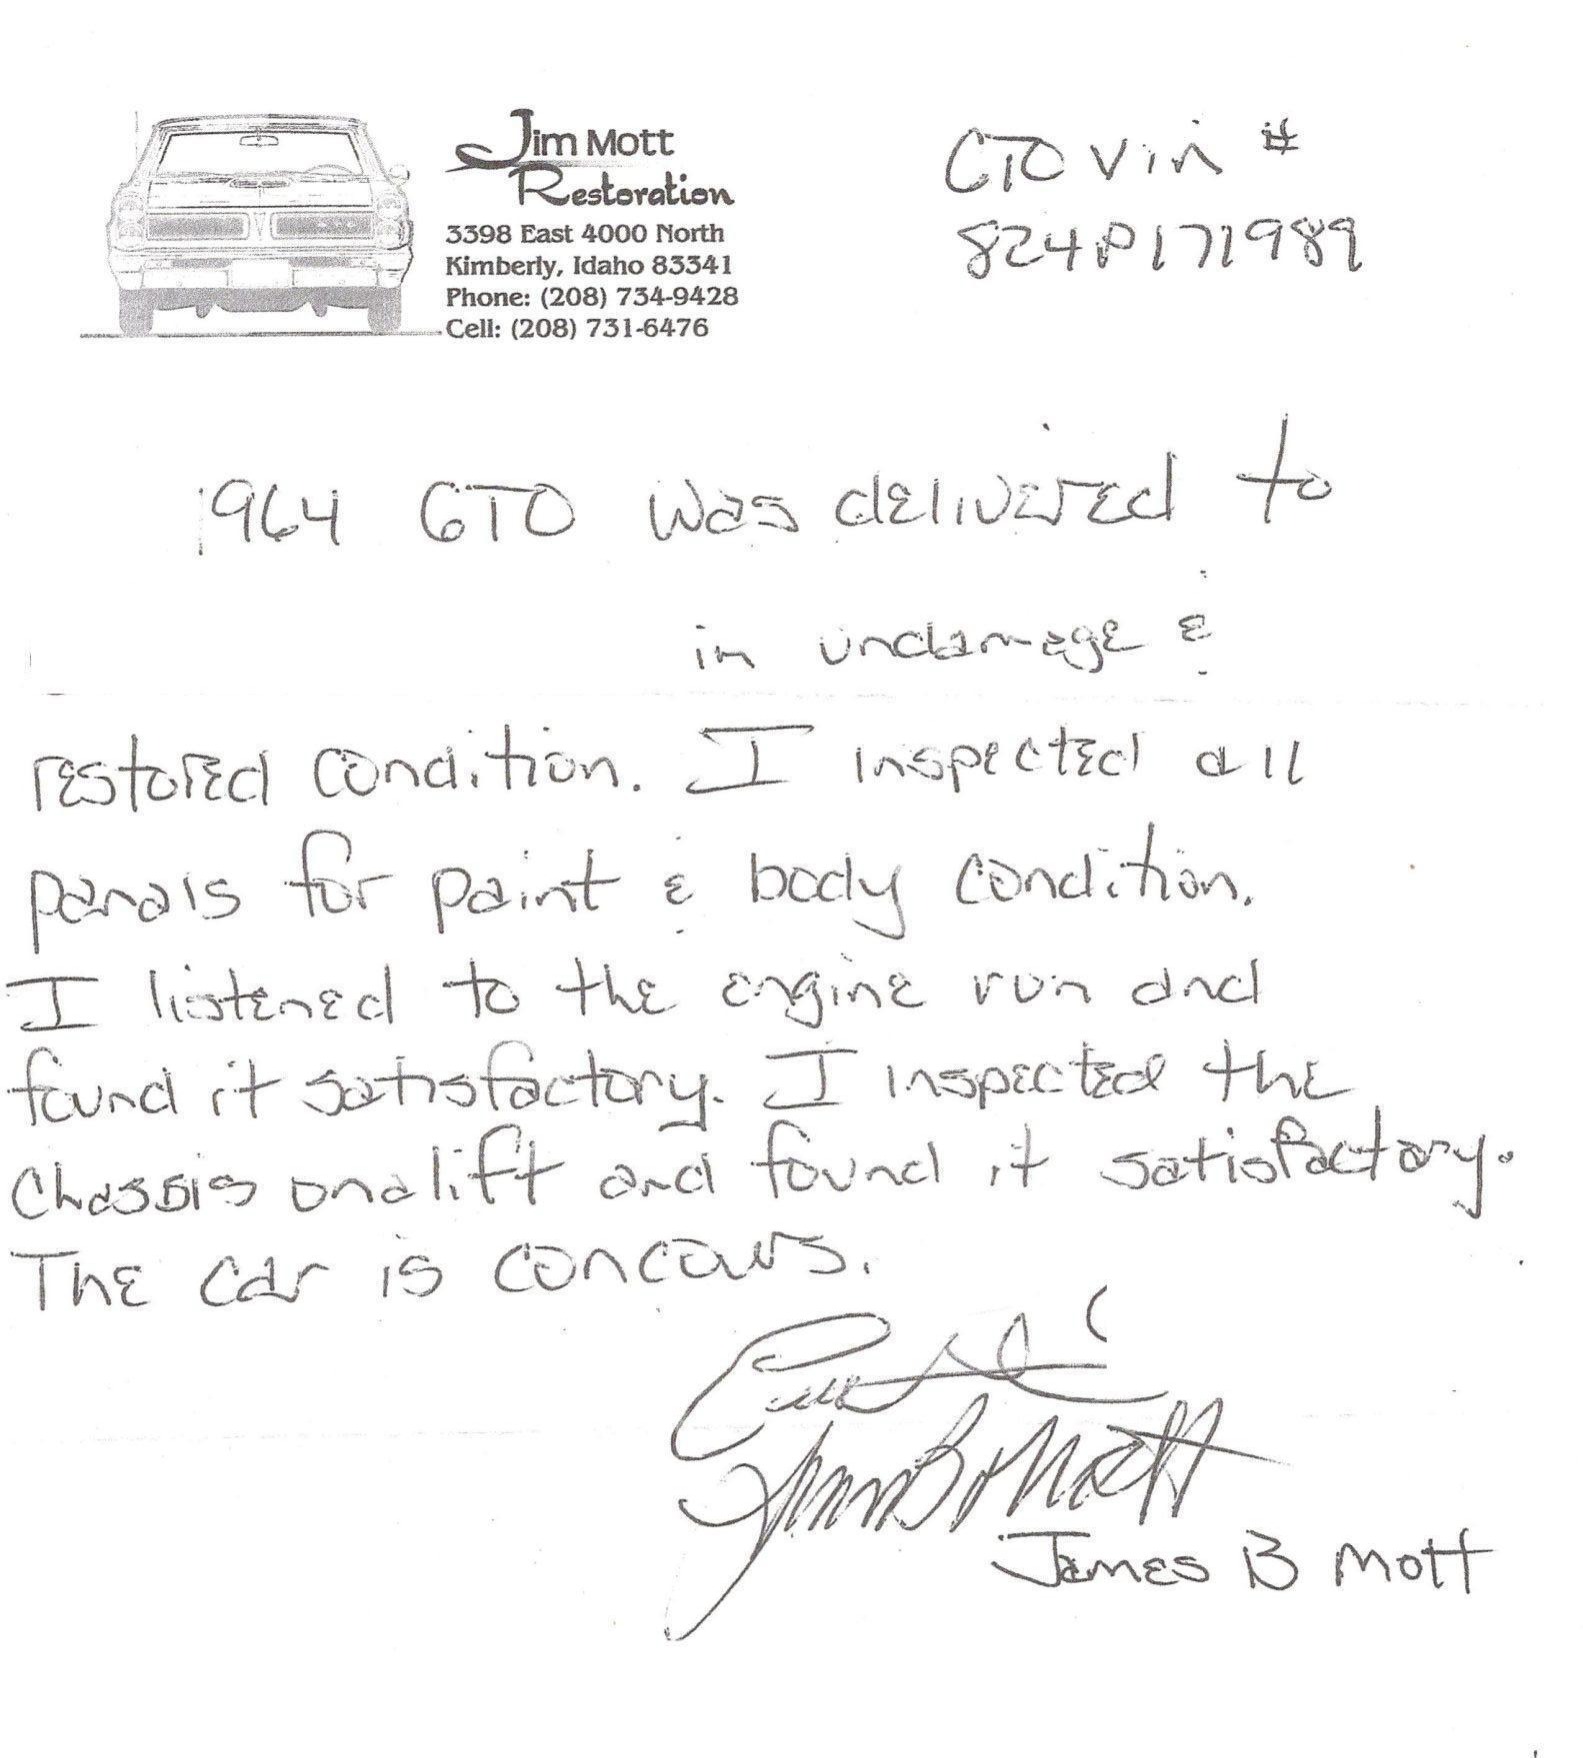 Jim Mott
Restoration
3398 East 4000 North
Kimberly, Idaho 83341
Phone: (208) 734-9428
Cell: (208) 731-6476
GTO Vin #
824P171989
1964 GTO was delivered to
in undamage &
restored condition. I inspected all
panals for paint & body condition.
I listened to the engine run and
found it satisfactory. I inspected the
Chassis on a lift and found it satisfactory.
The car is concours.
James B Mott
James B Mott